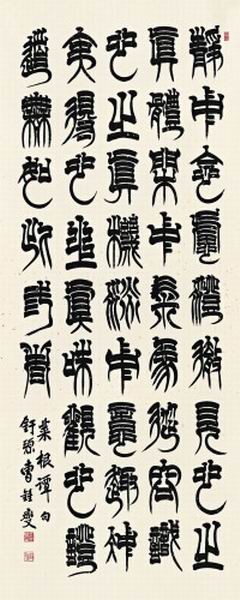 靜中念慮澂徹見心之
真體閑中氣象從容識
心之真機淡中意趣沖
夷得心之真味觀心證
道無如此三者
菜根譚句
曹